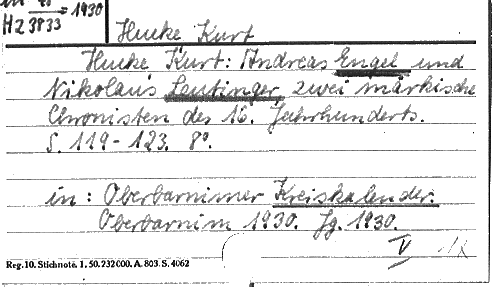 in
Hz 3833 = 1930
Hucke Kurt
Hucke Kurt: Andreas Engel und
Nikolaus Leutinger, zwei märkische
Chronisten des 16. Jahrhunderts.
S. 119-123. 8°.
in: Oberbarnimer Kreiskalender.
Oberbarnim 1930. Jg. 1930.
V
Reg. 10. Stichnote. 1. 50. 232 000. A. 803. S. 4062